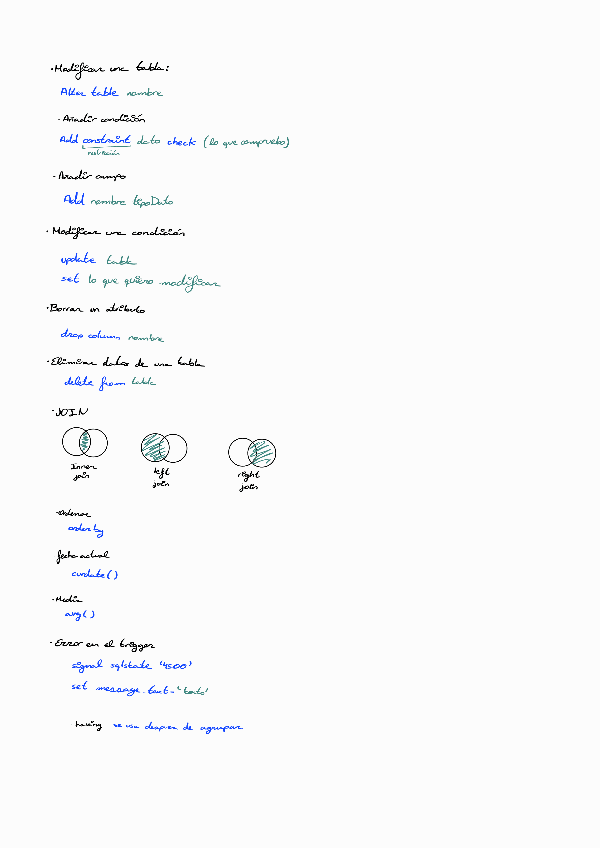 ·Modificar una tabla:
Alter table nombre
·Añadir condición
Add constraint dato check (lo que compruebo)
restricción
·Añadir campo
Add nombre tipoDato
·Modificar una condición
update tabla
set lo que quiero modificar
·Borrar un atributo
drop column nombre
·Eliminar datos de una tabla
delete from tabla
·JOIN
Inner join
left join
right join
·Ordenar
order by
fecha actual
curdate()
·Media
avg()
·Error en el trigger
signal sqlstate '4500'
set message_text='texto'
having se usa despues de agrupar